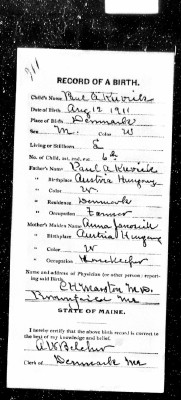 1911
RECORD OF A BIRTH.
Child's Name Paul A Kuvick
Date of Birth Aug 12 1911
Place of Birth Denmark
Sex M. Color W
Living or Stillborn L
No. of Child, 1st, 2nd, etc. 6th
Father's Name Paul Kuvick
" Birthplace Austria Hungary
" Color W
" Residence Denmark
" Occupation Farmer
Mother's Maiden Name Anna Janosik
" Birthplace Austria Hungary
" Color W
" Occupation Housekeeper
Name and address of Physician (or other person) reporting said Birth.
C H Marston M.D.
Brownfield Me
STATE OF MAINE.
I hereby certify that the above birth record is correct to
the best of my knowledge and belief.
A W Belcher
Clerk of Denmark Me